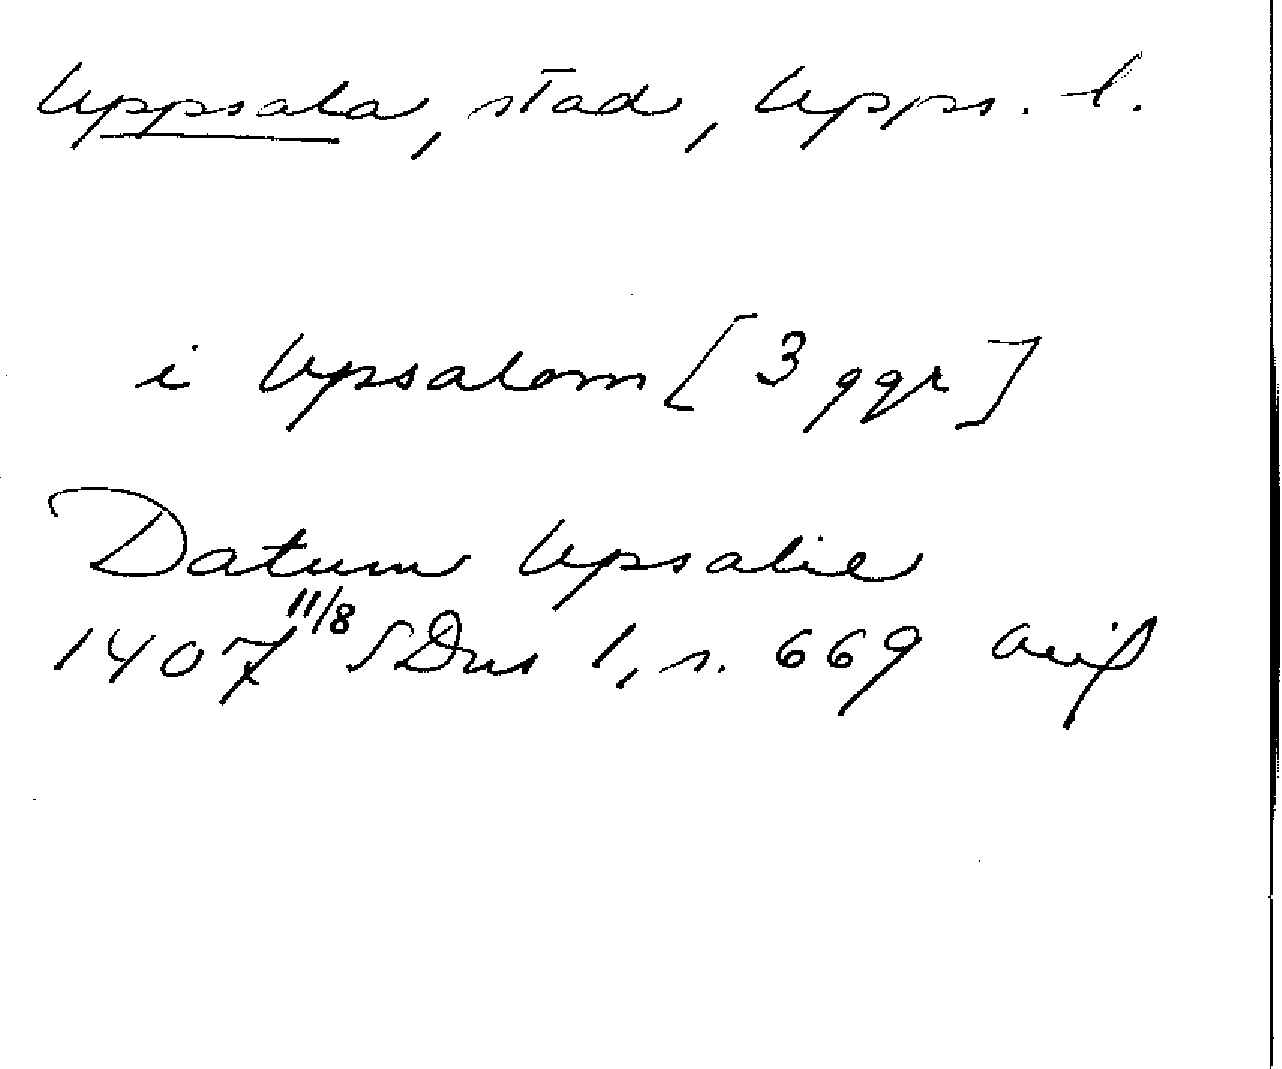 Uppsala, stad, Upps. l.
i Upsalom [3 ggr]
Datum Upsalie
1407 11/8 SDns 1, s. 669 avskr